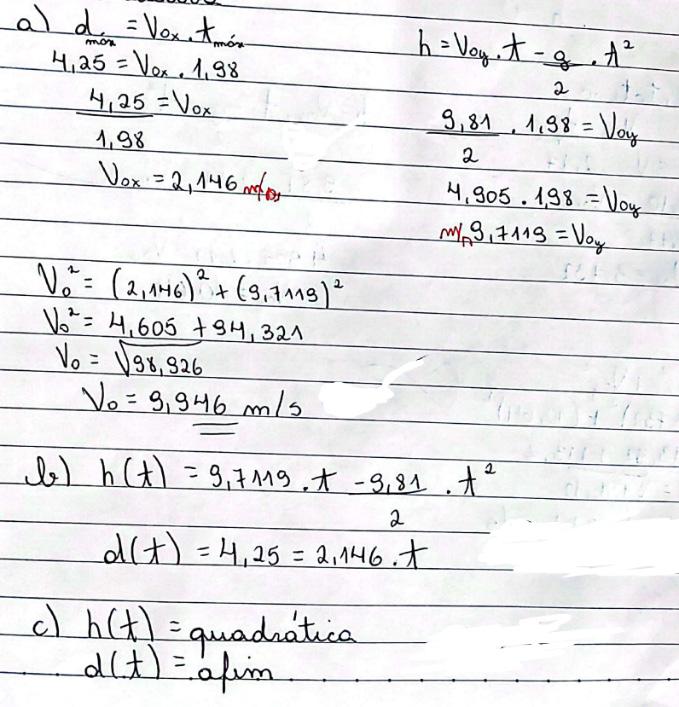 a) d máx = Vox . t máx
4,25 = Vox . 1,98
4,25 = Vox
1,98
Vox = 2,146 m/s
h = Voy . t - g . t²
2
9,81 . 1,98 = Voy
2
4,905 . 1,98 = Voy
m/s 9,7119 = Voy
Vo² = (2,146)² + (9,7119)²
Vo² = 4,605 + 94,321
Vo = √98,926
Vo = 9,946 m/s
b) h(t) = 9,7119 . t - 9,81 . t²
2
d(t) = 4,25 = 2,146 . t
c) h(t) = quadrática
d(t) = afim